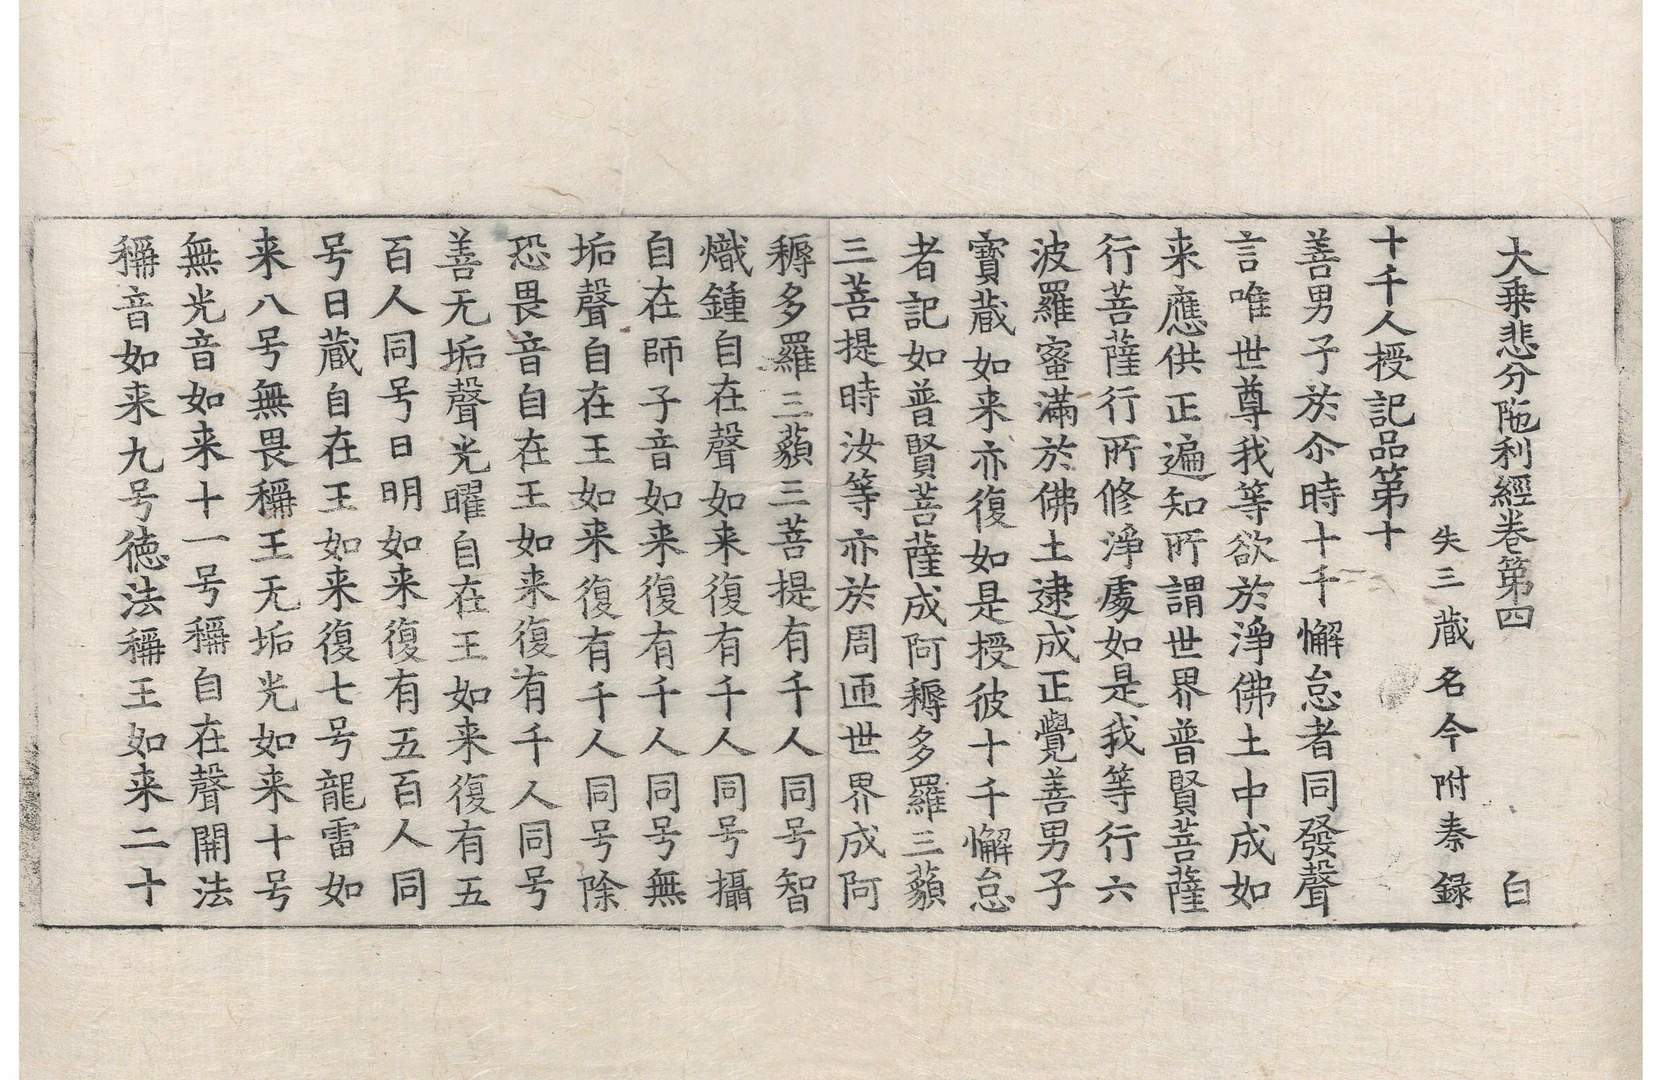 大乗悲分陁利經卷第四 白
失三藏名今附秦録
十千人授記品第十
善男子於尒時十千懈怠者同發聲
言唯世尊我等欲於淨佛土中成如
来應供正遍知所謂世界普賢菩薩
行菩薩行所修淨處如是我等行六
波羅蜜滿於佛土逮成正覺善男子
寶藏如来亦復如是授彼十千懈怠
者記如普賢菩薩成阿耨多羅三藐
三菩提時汝等亦於周匝世界成阿
耨多羅三藐三菩提有千人同号智
熾鍾自在聲如来復有千人同号攝
自在師子音如来復有千人同号無
垢聲自在王如来復有千人同号除
恐畏音自在王如来復有千人同号
善无垢聲光曜自在王如来復有五
百人同号日明如来復有五百人同
号日藏自在王如来復七号龍雷如
来八号無畏稱王无垢光如来十号
無光音如来十一号稱自在聲開法
稱音如来九号德法稱王如来二十